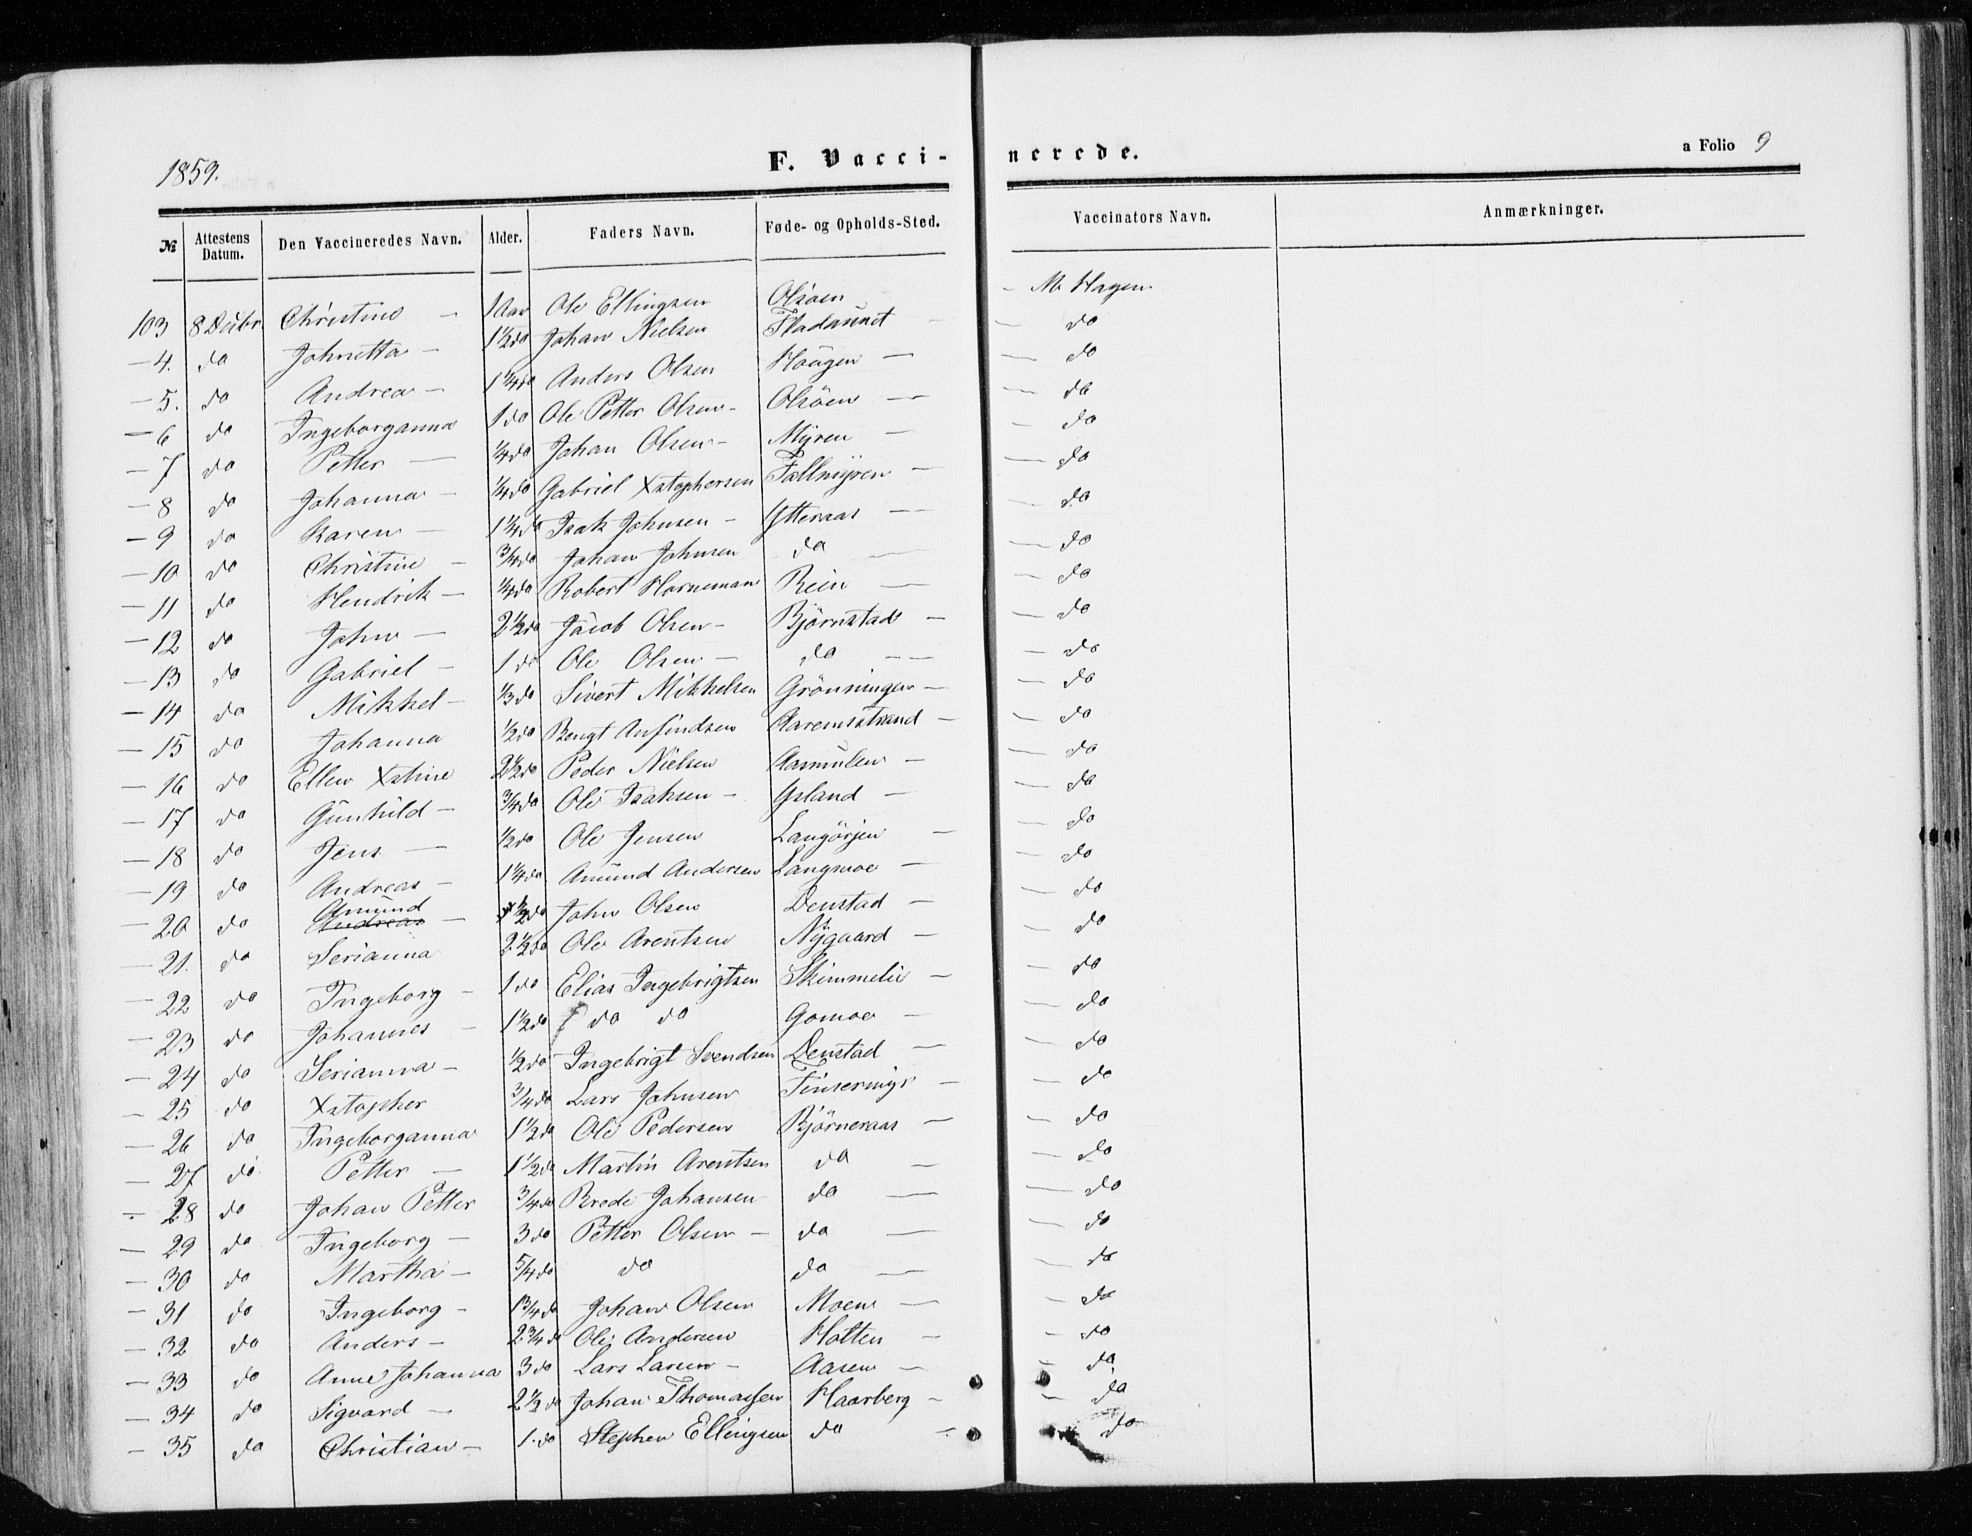 1859.
F. Vacci-
nerede.
a Folio 9
№ Attestens Datum. Den Vaccineredes Navn. Alder. Faders Navn. Føde- og Opholds-Sted. Vaccinators Navn. Anmærkninger.
103 8 Decbr Christine — 1 Aar Ole Ellingsen Olsöen — M. Hagen
— 4. do Johnetta — 1½ do Johan Nielsen Fladaunet — do
— 5. do Andrea — 1¼ do Anders Olsen Haugen — — do
— 6 do Ingeborganna 1 do Ole Petter Olsen — Olsöen — — do
— 7 do Petter — ¼ do Johan Olsen — Myren — — do
— 8 do Johanna — ¼ do Gabriel Xstophersen Fallmyren — — do
— 9 do Karen — 1¼ do Isak Johnsen — Ytteraas — — do
— 10 do Christine — ¾ do Johan Johnsen do — — do
— 11 do Hendrik — ¼ do Robert Horneman Rein — — do
— 12 do John — 2½ do Jacob Olsen — Björnstad — — do
— 13 do Gabriel — 1 do Ole Olsen — do — — do
— 14 do Mikkel — ⅓ do Sivert Mikkelsen Grönningen — — do
— 15 do Johanna ½ do Bengt Arnfindsen Aaremsstrand — — do
— 16 do Ellen Xstine 2½ do Peder Nielsen Aarmulen — — do
— 17 do Gunhild — ¾ do Ole Isaksen — Ysland — — do
— 18 do Jens — ½ do Ole Jensen Langörjen — — do
— 19 do Andreas — 1¼ do Amund Andersen Langmoe — — do
— 20 do Amund Andreas — 1½ do John Olsen Denstad — — do
— 21. do Serianna 2½ do Ole Arentsen Nygaard — — do
— 22 do Ingeborg — 1 do Elias Ingebrigtsen Skimmelie — — do
— 23 do Johannes — 1½ do do do Gomoe — — do
— 24 do Serianna — ½ do Ingebrigt Svendsen Denstad — — do
— 25 do Xstopher ¾ do Lars Johnsen Finsermyr — — do
— 26 do Ingeborganna 1½ do Ole Pedersen Björneraas — — do
— 27 do Petter — 1½ do Martin Arentsen do — — do
— 28 do Johan Petter ¾ do Brede Johansen do — — do
— 29 do Ingeborg — 3 do Petter Olsen — do — — do
— 30 do Martha — 5/4 do do do — — do
— 31 do Ingeborg — 1¾ do Johan Olsen Moen — — do
— 32 do Anders — 2¾ do Ole Andersen Holten — — do
— 33 do Anne Johanna 3 do Lars Larsen — Aasen — — do
— 34 do Sigvard — 2½ do Johan Thomassen Haarberg — — do
— 35 do Christian — 1 do Stephen Ellingsen do — do